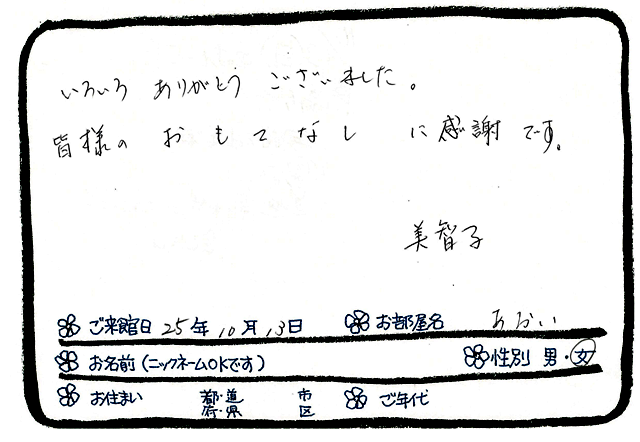 いろいろ ありがとう ございました。
皆様の おもてなし に感謝です。
美智子
ご来館日 25年 10月 13日 お部屋名 あおい
お名前(ニックネームOKです) 性別 男・女
お住まい 都・道 府・県 市 区 ご年代